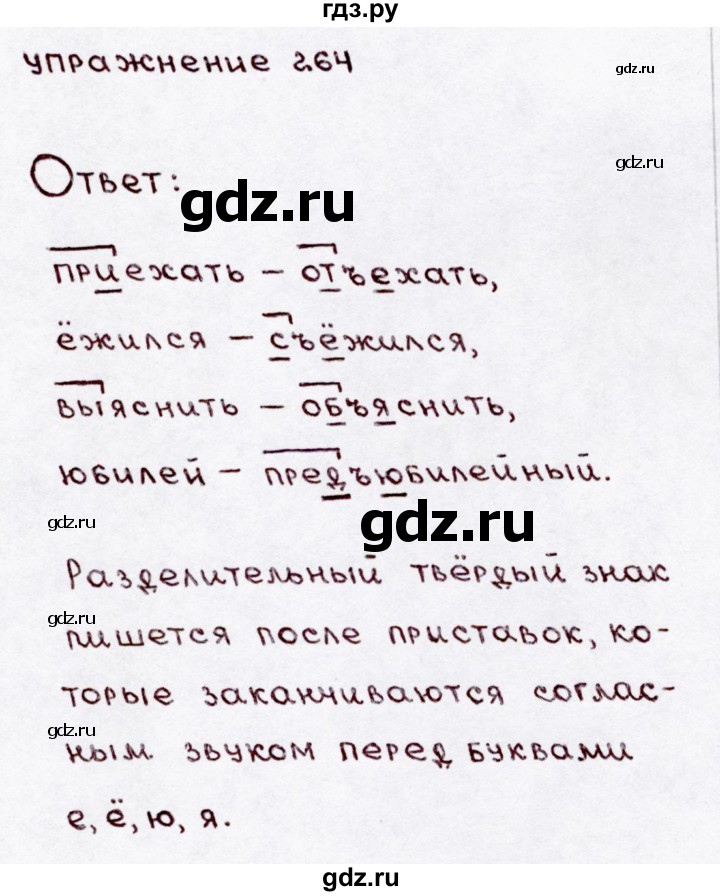 гдз.ру
упражнение 264
gdz.ru
Ответ:
gdz.ru
gdz.ru
приехать – отъехать,
ёжился – съёжился,
выяснить – объяснить,
юбилей – предъюбилейный.
gdz.ru
gdz.ru
Разделительный твёрдый знак
gdz.ru
пишется после приставок, ко-
торые заканчиваются соглас-
gdz.ru
ным звуком перед буквами
е, ё, ю, я.
gdz.ru